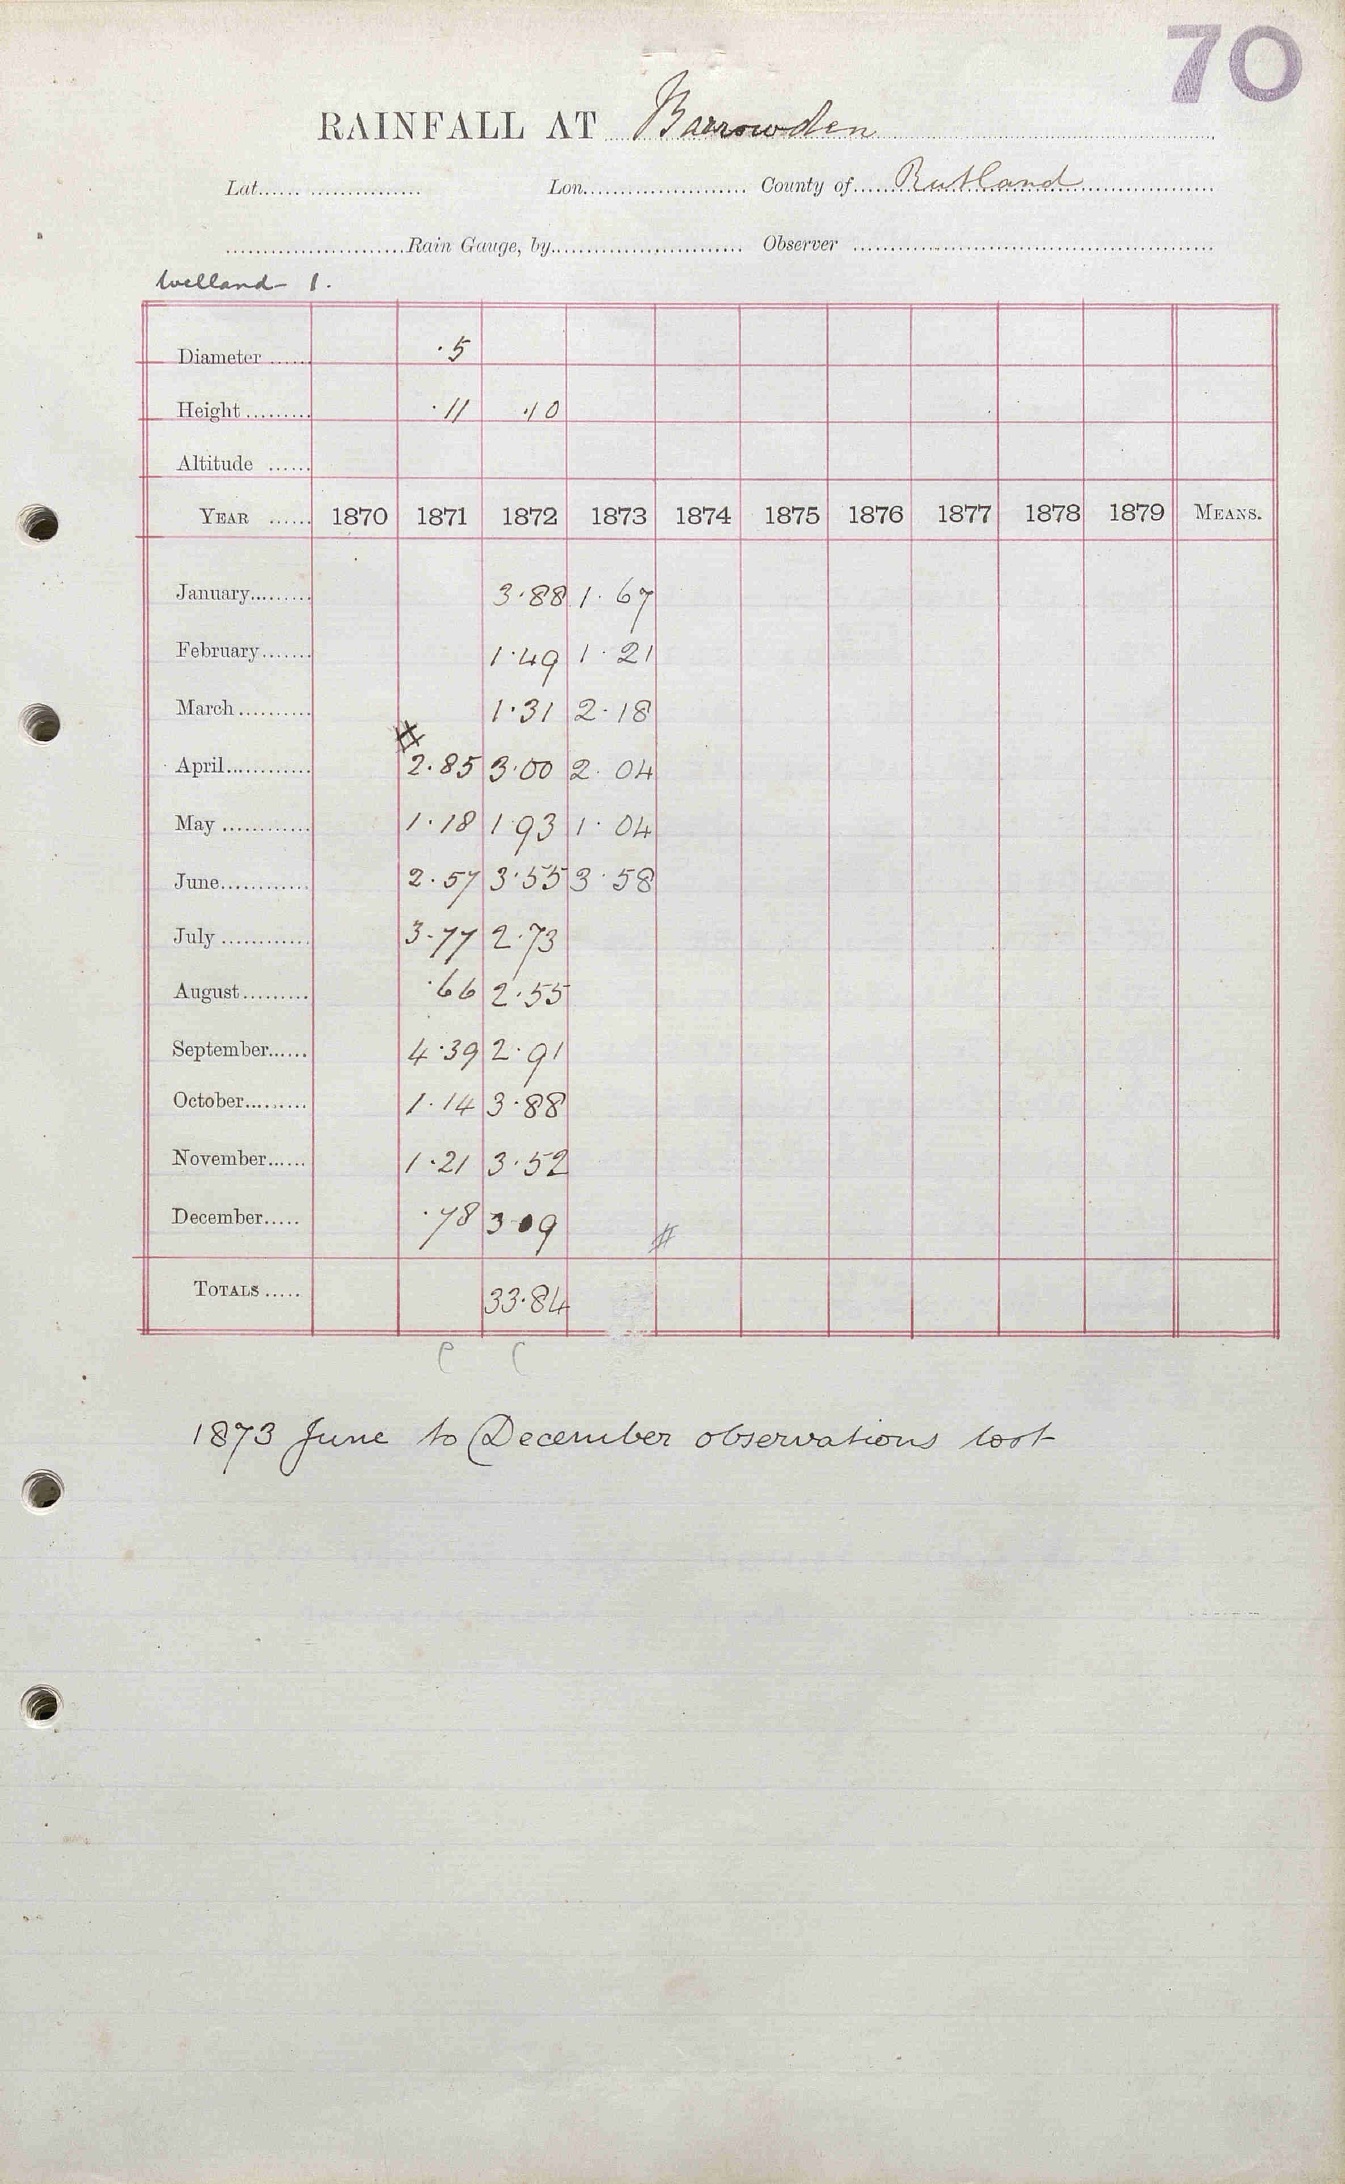 70
RAINFALL AT Barrowden
Lat. Lon. County of Rutland
Rain Gauge, by Observer
Welland 1.
Diameter ·5
Height ·11 ·10
Altitude
YEAR 1870 1871 1872 1873 1874 1875 1876 1877 1878 1879 MEANS.
January 3·88 1·67
February 1·49 1·21
March 1·31 2·18
April 2·85 3·00 2·04
May 1·18 1·93 1·04
June 2·57 3·55 3·58
July 3·77 2·73
August ·66 2·55
September 4·39 2·91
October 1·14 3·88
November 1·21 3·52
December ·78 3·09
TOTALS 33·84
1873 June to December observations lost